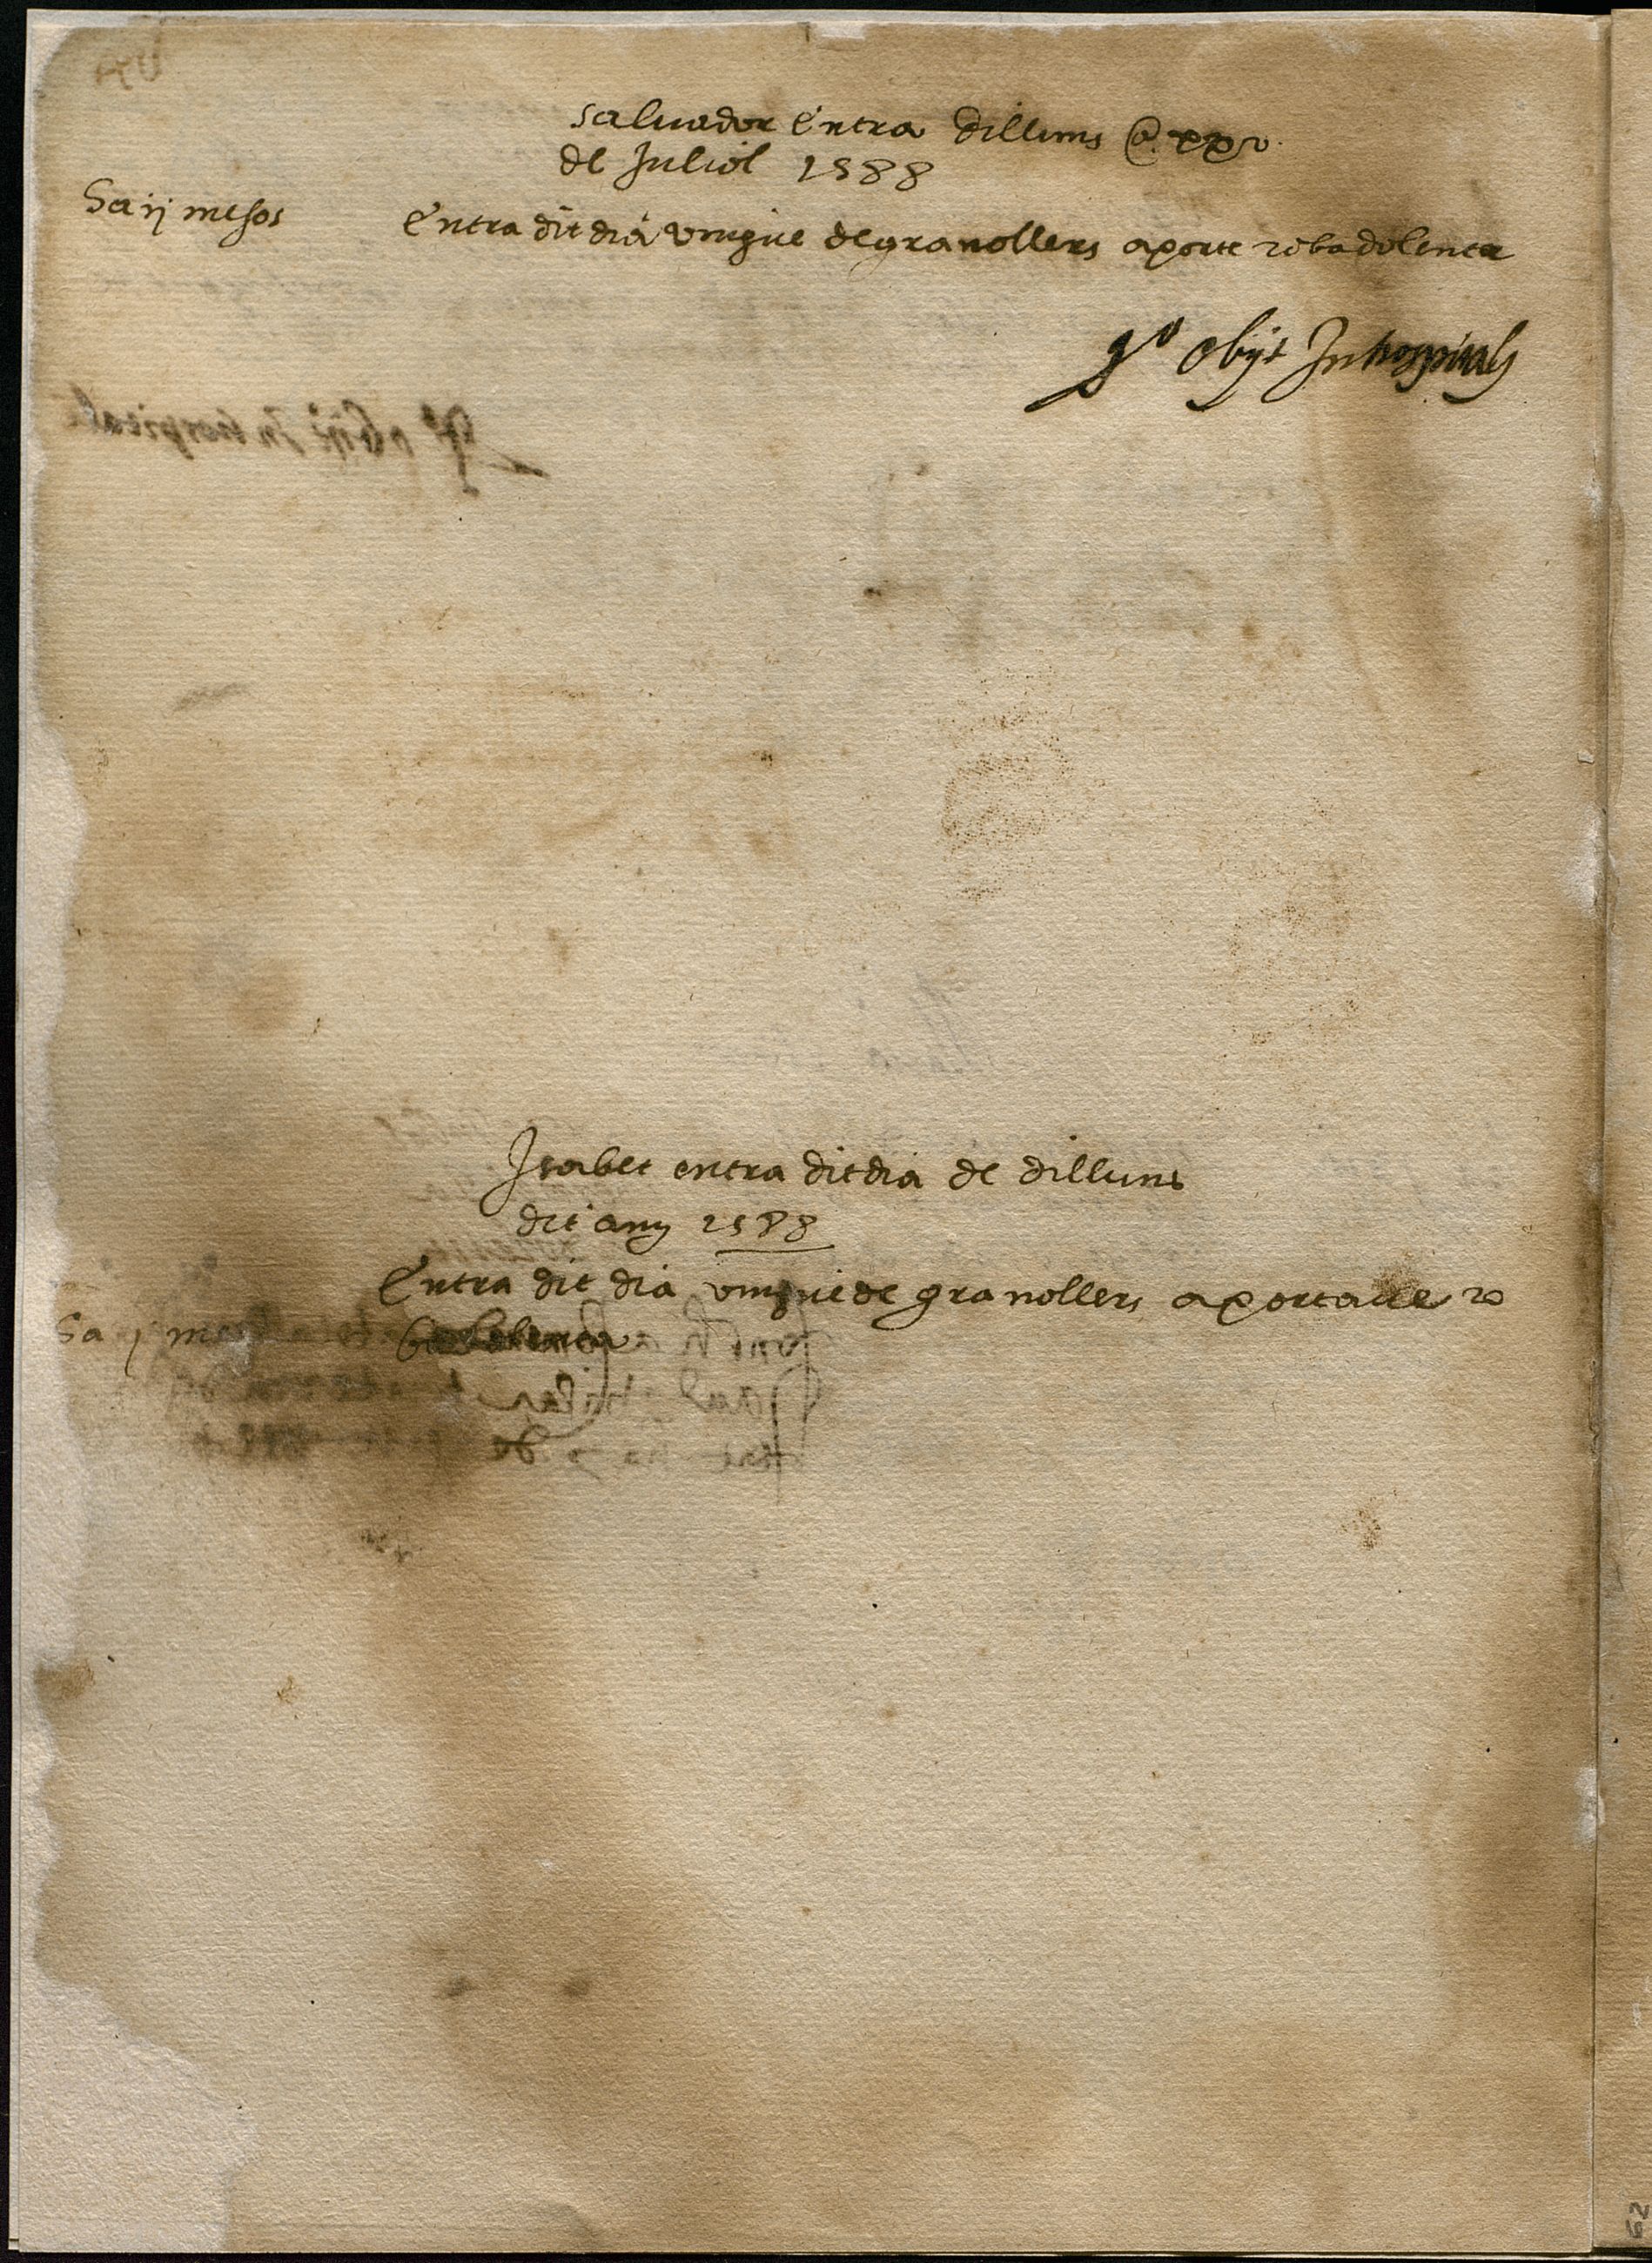 Saluador entra dillums @ xxv
de Juliol 1588
Sa ij mesos
Entra dit dia vingue de granollers aporte roba dolenta
gº obijt In hospitali
Isabet entra dit dia de dilluns
dit any 1588
Entra dit dia vingue de granollers aportaue ro
Sa j mes
ba dolenta
62